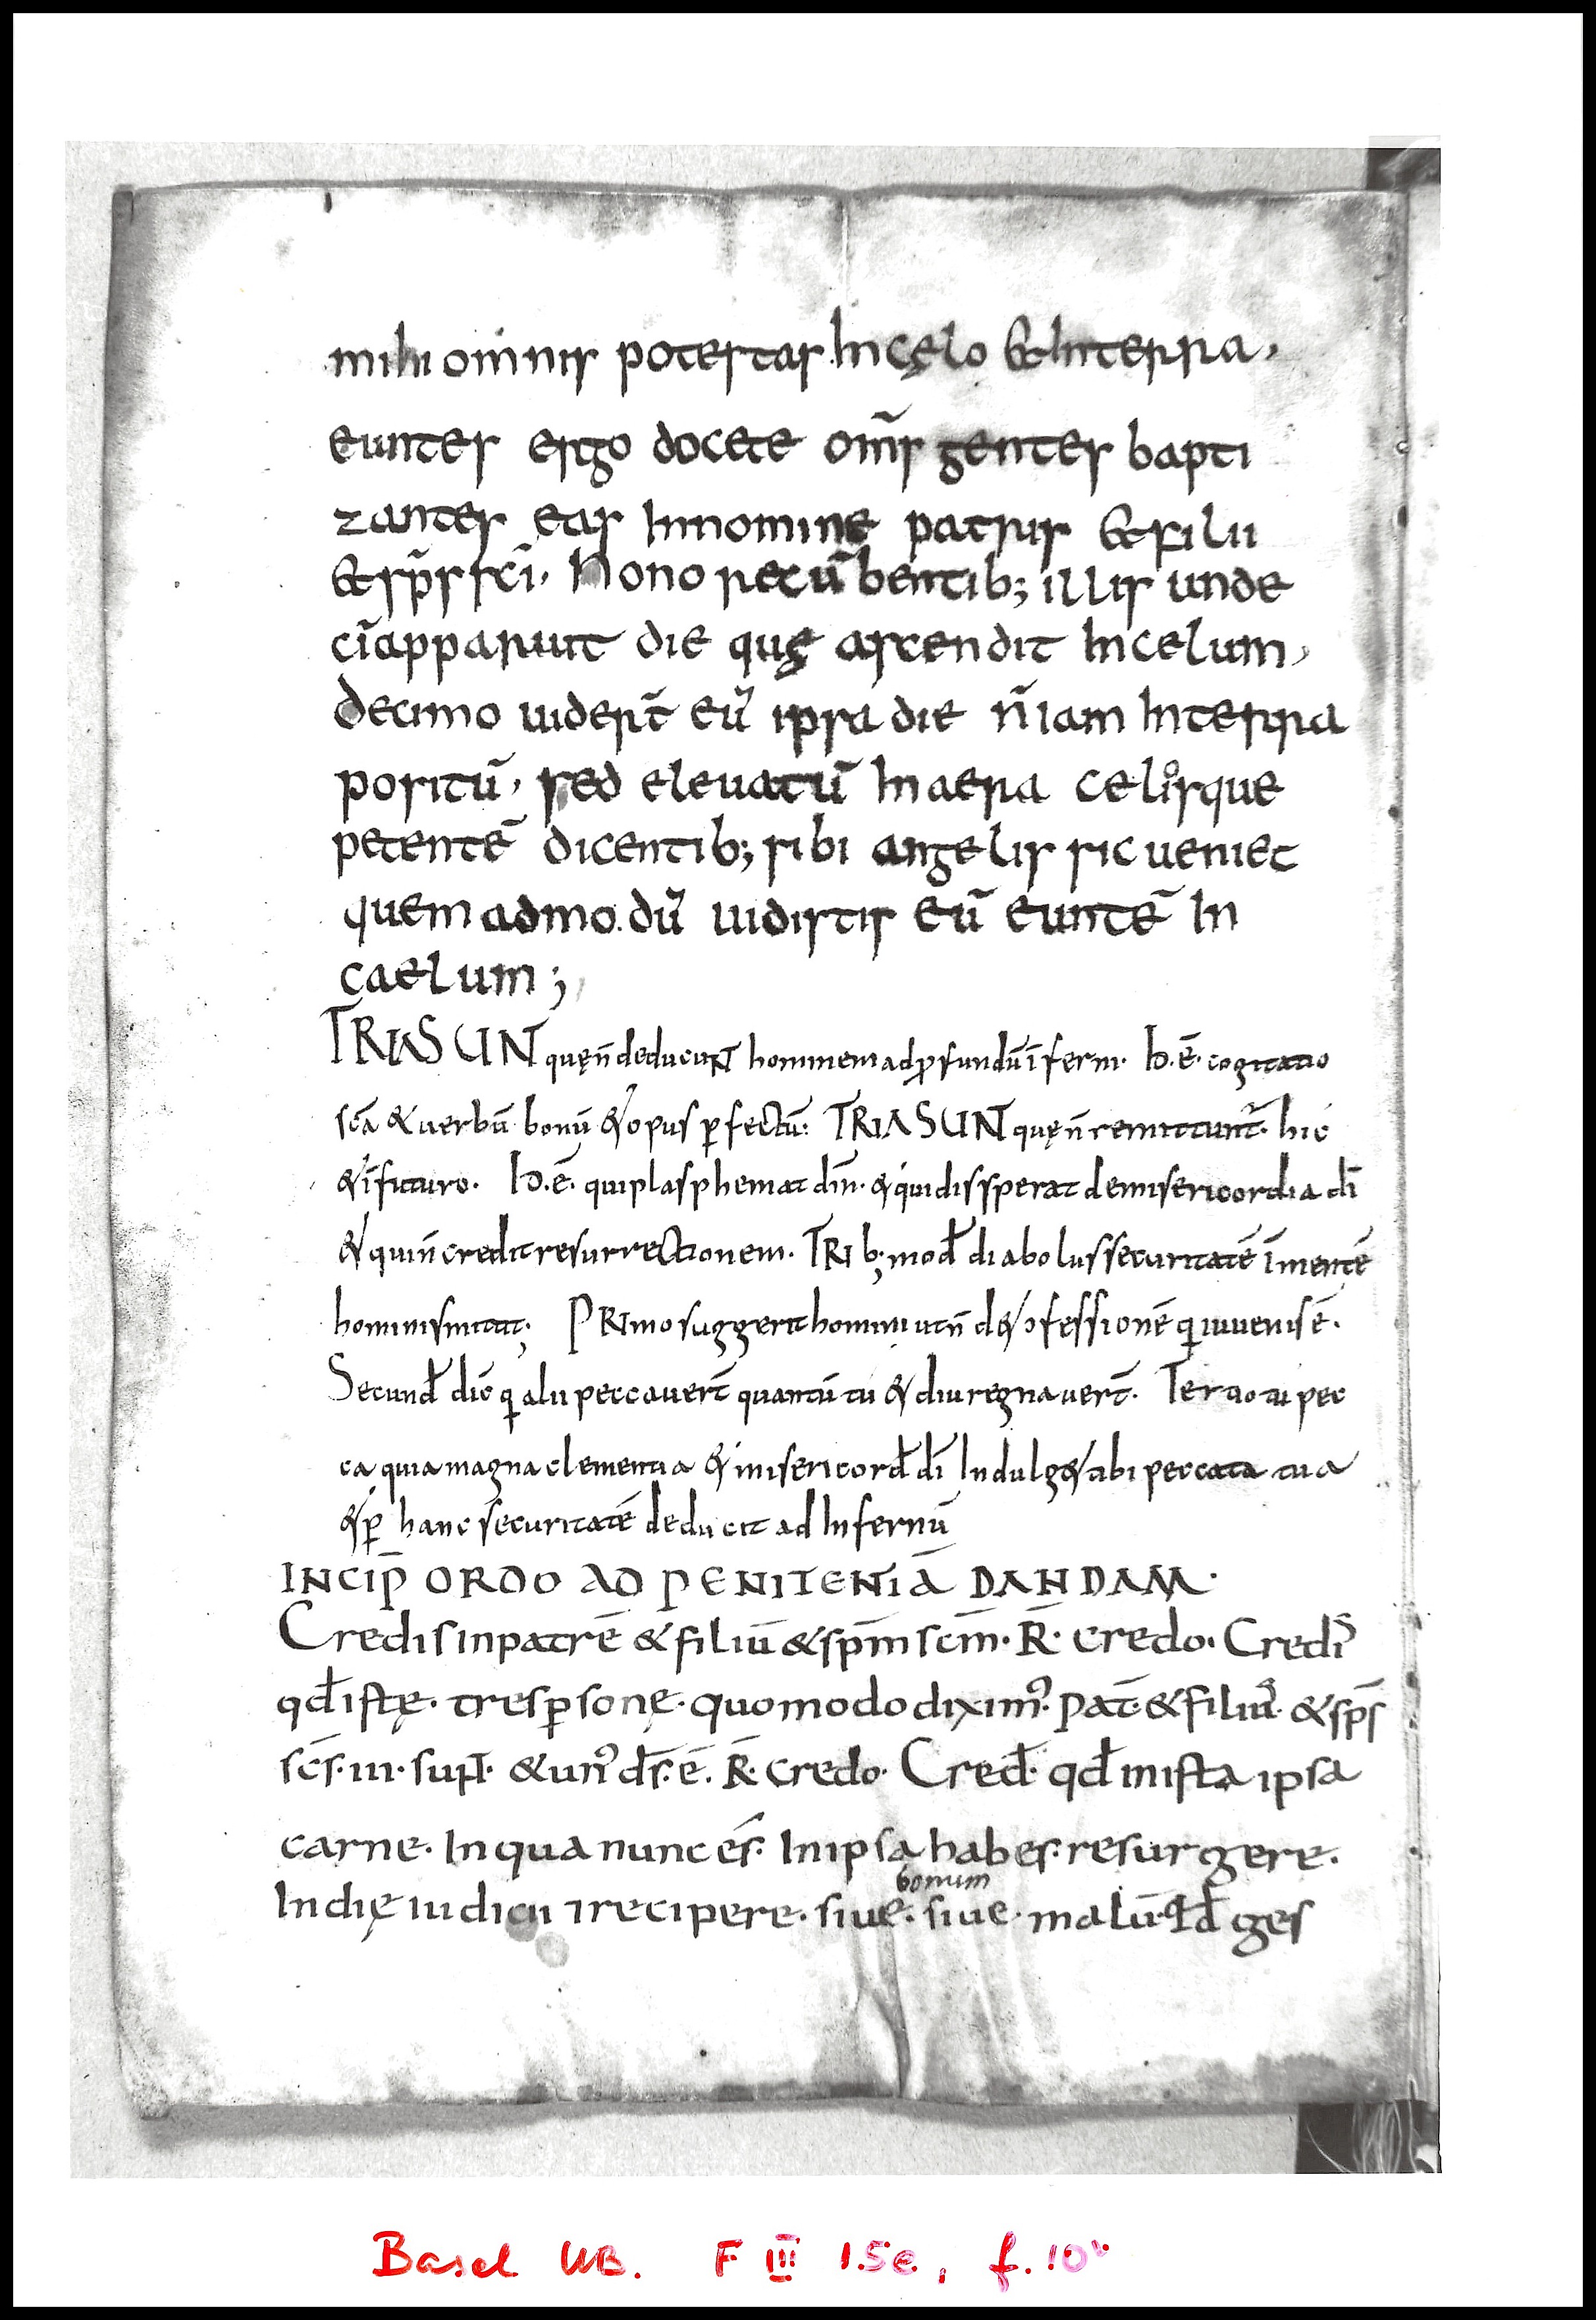 mihi omnis potestas In cęlo & In terra,
euntes ergo docete om̅s gentes bapti
zantes eas In nomine patris & filii
& sp̅s sc̅i, Nono recu̅bentib; illis unde
ci̅ apparuit die quę ascendit In celum,
decimo uider̅t eu̅ ipsa die n̅ iam In terra
positu̅, sed eleuatu̅ In aera celosque
petente̅ dicentib; sibi angelis sic ueniet
quem admo.du̅ uidistis eu̅ eunte̅ In
caelum;
TRIA SUNT quę n̅ deducunt hominem ad ꝓfundu̅ i̅ferni. h̵.e̅. cogitatio
sc̅a & uerbu̅ bonu̅ & opus ꝑfectu̅: TRIA SUNT quę n̅ remittunt᷑. hic
& i̅ futuro. h̵.e̅. qui plasphemat dm̅. & qui dissperat de misericordia di̅
& qui n̅ credit resurrectionem. TRIb; mod̅ diabolus securitate̅ i̅ mente̅
hominis mittit; PRImo suggerit homini ut n̅ det ꝯfessione̅ q̅ iuuenis e̅.
Secund̅ dic̅ q̅ alii peccauer̅t quantu̅ tu & diu regnauer̅t. Tertio ai pec
ca quia magna clementia & misericord̅ di̅ Indulget tibi peccata tua
& ꝑ hanc securitate̅ deducit ad Infernu̅
INCIP̅ ORDO AD PENITENTIA̅ DANDAM.
Credis in patre̅ & filiu̅ & sp̅m sc̅m. R̅. credo. Credis
qd̅ istę. tres ꝑsonę. quomodo diximꝰ. Pat̅. & filiu̅s. & sp̅s
sc̅s. III. sunt. & unꝰ ds̅. e̅. R̅. credo. Cred̅. qd̅ in ista ipsa
carne. In qua nunc es̅. In ipsa habes. resurgere.
In dię iudicii ⁊ recipere. siue. bonum siue. malu̅. qd̅ ges
Basel UB. F III 15e, f. 10v